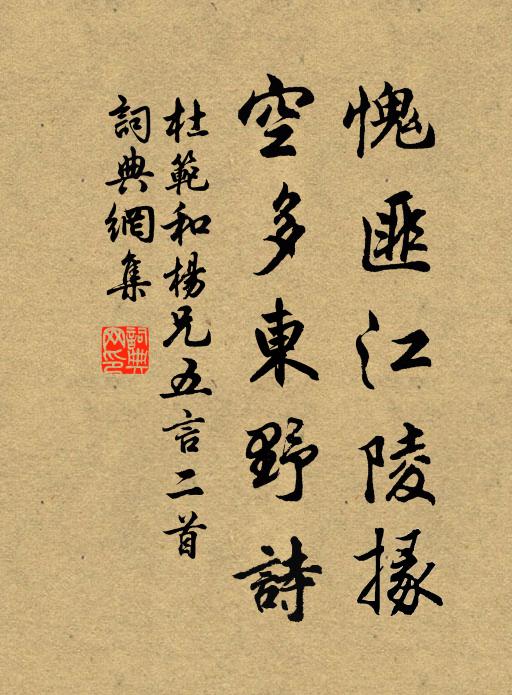 愧匪江陵掾
空多東野詩
杜範和楊兄五言二首
詞典網集
詞典網印